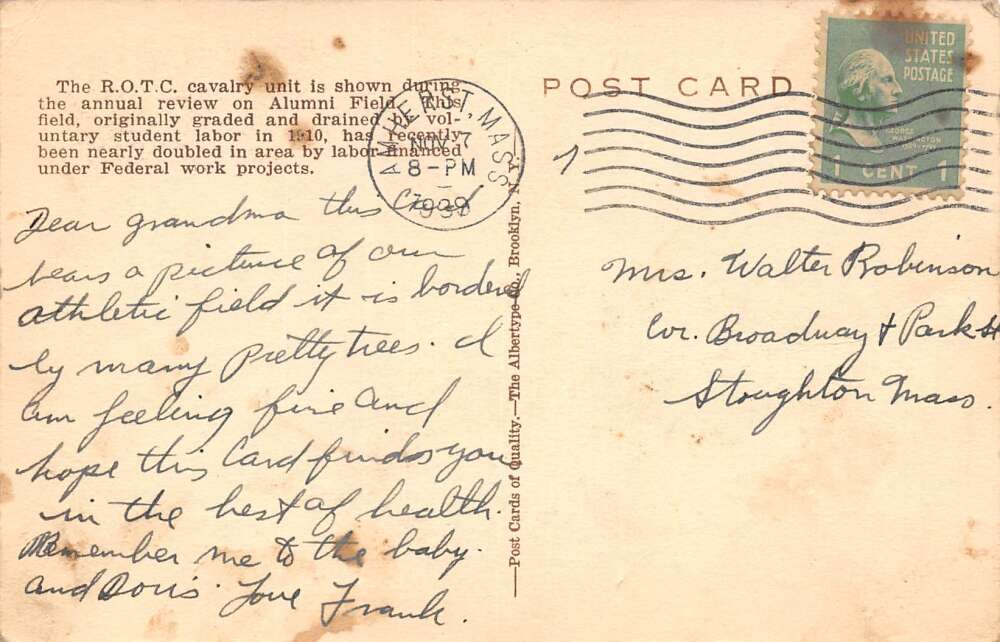 The R.O.T.C. cavalry unit is shown during
the annual review on Alumni Field. This
field, originally graded and drained by vol-
untary student labor in 1910, has recently
been nearly doubled in area by labor financed
under Federal work projects.
Dear grandma this Card
bears a picture of our
athletic field it is bordered
by many pretty trees. I
am feeling fine and
hope this Card finds you
in the best of health.
Remember me to the baby.
and Doris. Love Frank.
AMHERST, MASS
NOV 7
8-PM
Post Cards of Quality.—The Albertype Co., Brooklyn, N.Y.
POST CARD
UNITED
STATES
POSTAGE
GEORGE
WASHINGTON
1 CENT 1
Mrs. Walter Robinson
Cor. Broadway & Park St
Stoughton Mass.